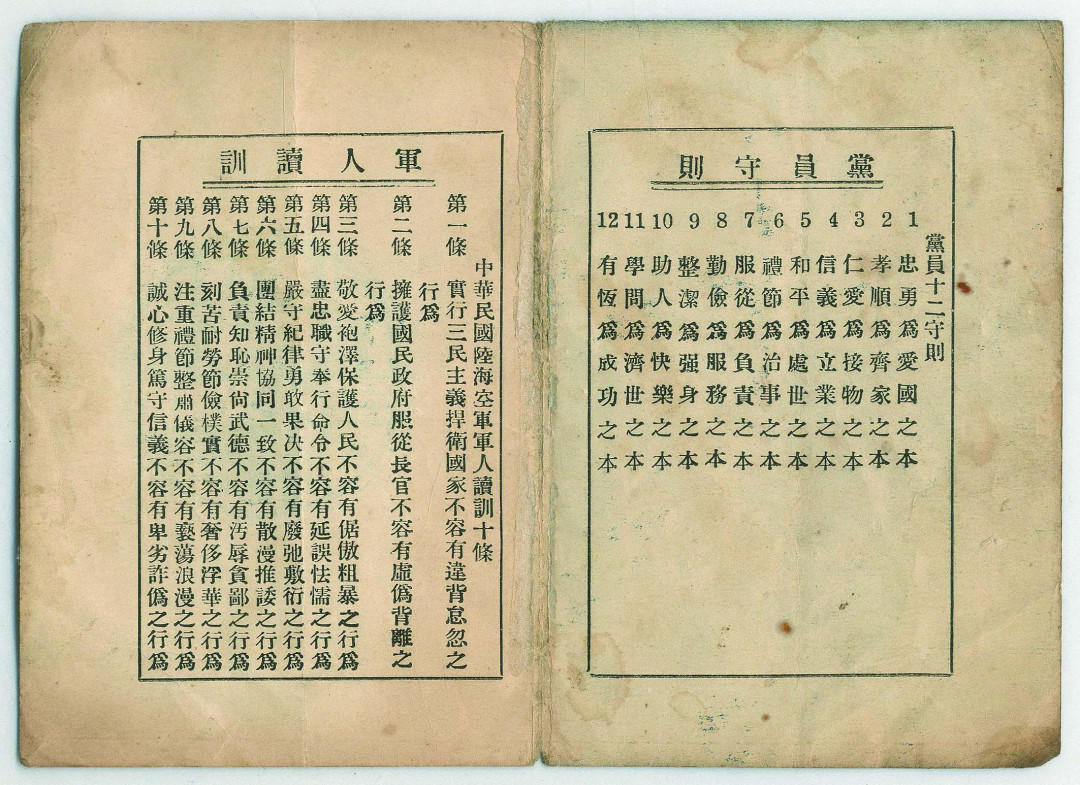 黨員守則
黨員十二守則
1 忠勇爲愛國之本
2 孝順爲齊家之本
3 仁愛爲接物之本
4 信義爲立業之本
5 和平爲處世之本
6 禮節爲治事之本
7 服從爲負責之本
8 勤儉爲服務之本
9 整潔爲强身之本
10 助人爲快樂之本
11 學問爲濟世之本
12 有恆爲成功之本
軍人讀訓
中華民國陸海空軍軍人讀訓十條
第一條 實行三民主義捍衛國家不容有違背怠忽之
行爲
第二條 擁護國民政府服從長官不容有虛僞背離之
行爲
第三條 敬愛袍澤保護人民不容有倨傲粗暴之行爲
第四條 盡忠職守奉行命令不容有延誤怯懦之行爲
第五條 嚴守紀律勇敢果决不容有廢弛敷衍之行爲
第六條 團結精神協同一致不容有散漫推諉之行爲
第七條 負責知恥崇尙武德不容有汚辱貪鄙之行爲
第八條 刻苦耐勞節儉樸實不容有奢侈浮華之行爲
第九條 注重禮節整肅儀容不容有褻蕩浪漫之行爲
第十條 誠心修身篤守信義不容有卑劣詐僞之行爲